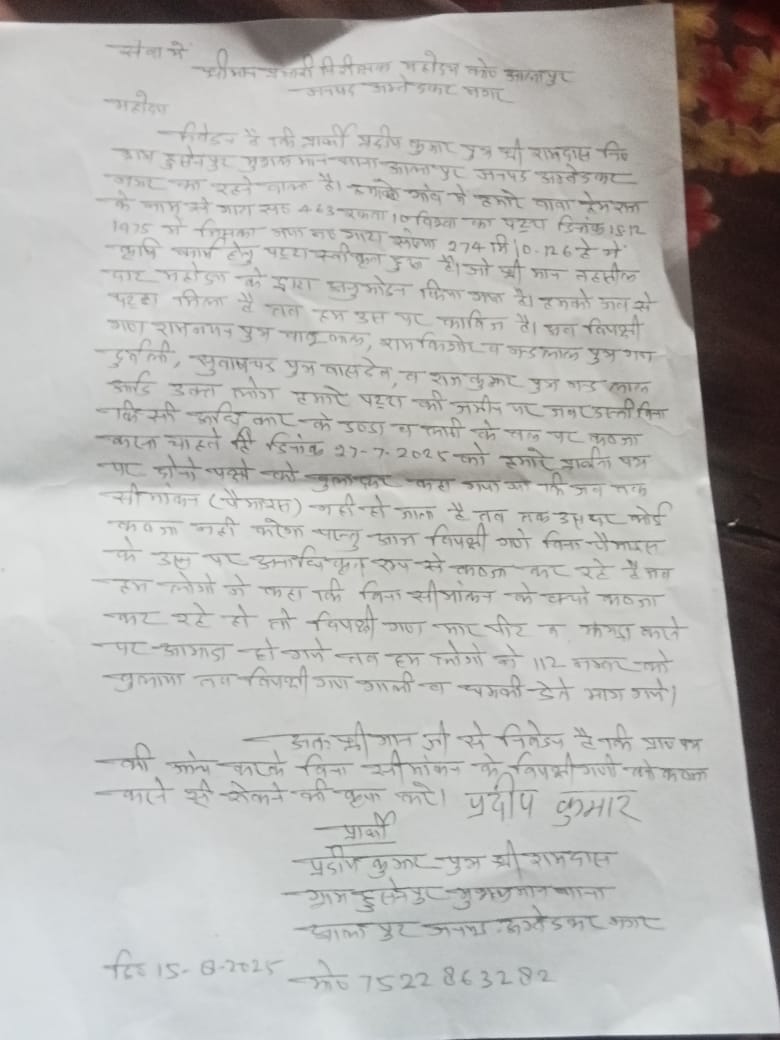 सेवा में
श्रीमान प्रभारी निरीक्षक महोदय को० आलापुर
जनपद अम्बेडकर नगर
महोदय
निवेदन है की प्रार्थी प्रदीप कुमार पुत्र श्री रामदास नि०
ग्राम हुसेनपुर मुसलमान थाना आलापुर जनपद अम्बेडकर
नगर का रहने वाला है। हमारे गाँव मे हमारे बाबा प्रेमराज
के नाम से गाटा स० 463 रकबा 10 विस्वा का पट्टा दिनांक 15.12
1975 में जिसका नया न० गाटा संख्या 274 मि 0.126 हे मे
कृषि कार्य हेतु पट्टा स्वीकृत हुआ है। जो श्री मान तहसील
दार महोदय के द्वारा अनुमोदन किया गया है। हमको जब से
पट्टा मिला है तब हम उस पर काबिज है। अब विपक्षी
गण रामनयन पुत्र बाबूलाल, रामकिशोर व नन्दलाल पुत्र गण
दुर्बली, सुबाषचन्द पुत्र बासदेव, व रामकुमार पुत्र नन्द लाल
आदि उक्त लोग हमारे पट्टा की जमीन पर जबरदस्ती बिना
किसी अधिकार के डण्डा व लाठी के बल पर कब्जा
करना चाहते है दिनांक 27-7-2025 को हमारे प्रार्थना पत्र
पर दोनो पक्षो को बुलाकर कहा गया था की जब तक
सीमांकन (पैमाइस) नही हो जाता है तब तक उस पर कोई
कब्जा नही करेगा परन्तु आज विपक्षी गण बिना पैमाइस
के उस पर अनाधिकृत रूप से कब्जा कर रहे है जब
हम लोगो ने कहा की बिना सीमांकन के क्यो कब्जा
कर रहे हो तो विपक्षी गण मार पीट व झगड़ा करने
पर आमादा हो गये तब हम लोगो ने 112 नम्बर को
बुलाया तब विपक्षी गण गाली व धमकी देते भाग गये।
अतः श्री मान जी से निवेदन है की प्रा० पत्र
की जांच करके बिना सीमांकन के विपक्षीगणो को कब्जा
करने से रोकने की कृपा करे। प्रदीप कुमार
प्रार्थी
प्रदीप कुमार पुत्र श्री रामदास
ग्राम हुसेनपुर मुसलमान थाना
आलापुर जनपद अम्बेडकर नगर
दि० 15-8-2025
मो० 7522863282